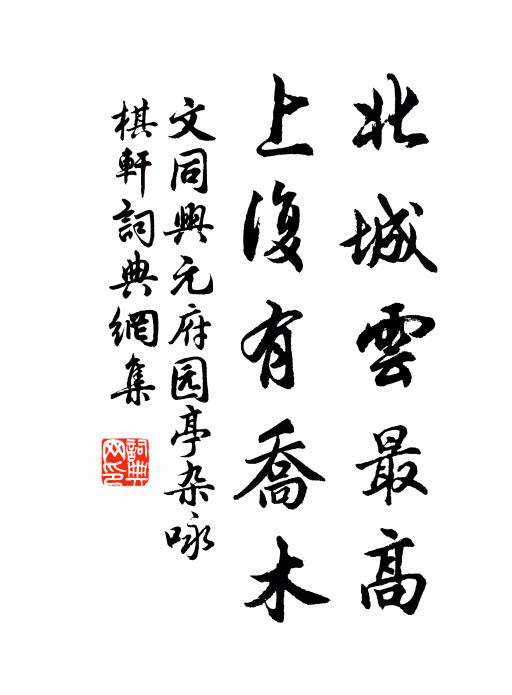 北城雲最高
上復有喬木
文同興元府园亭杂咏
棋軒詞典網集
詞典网印